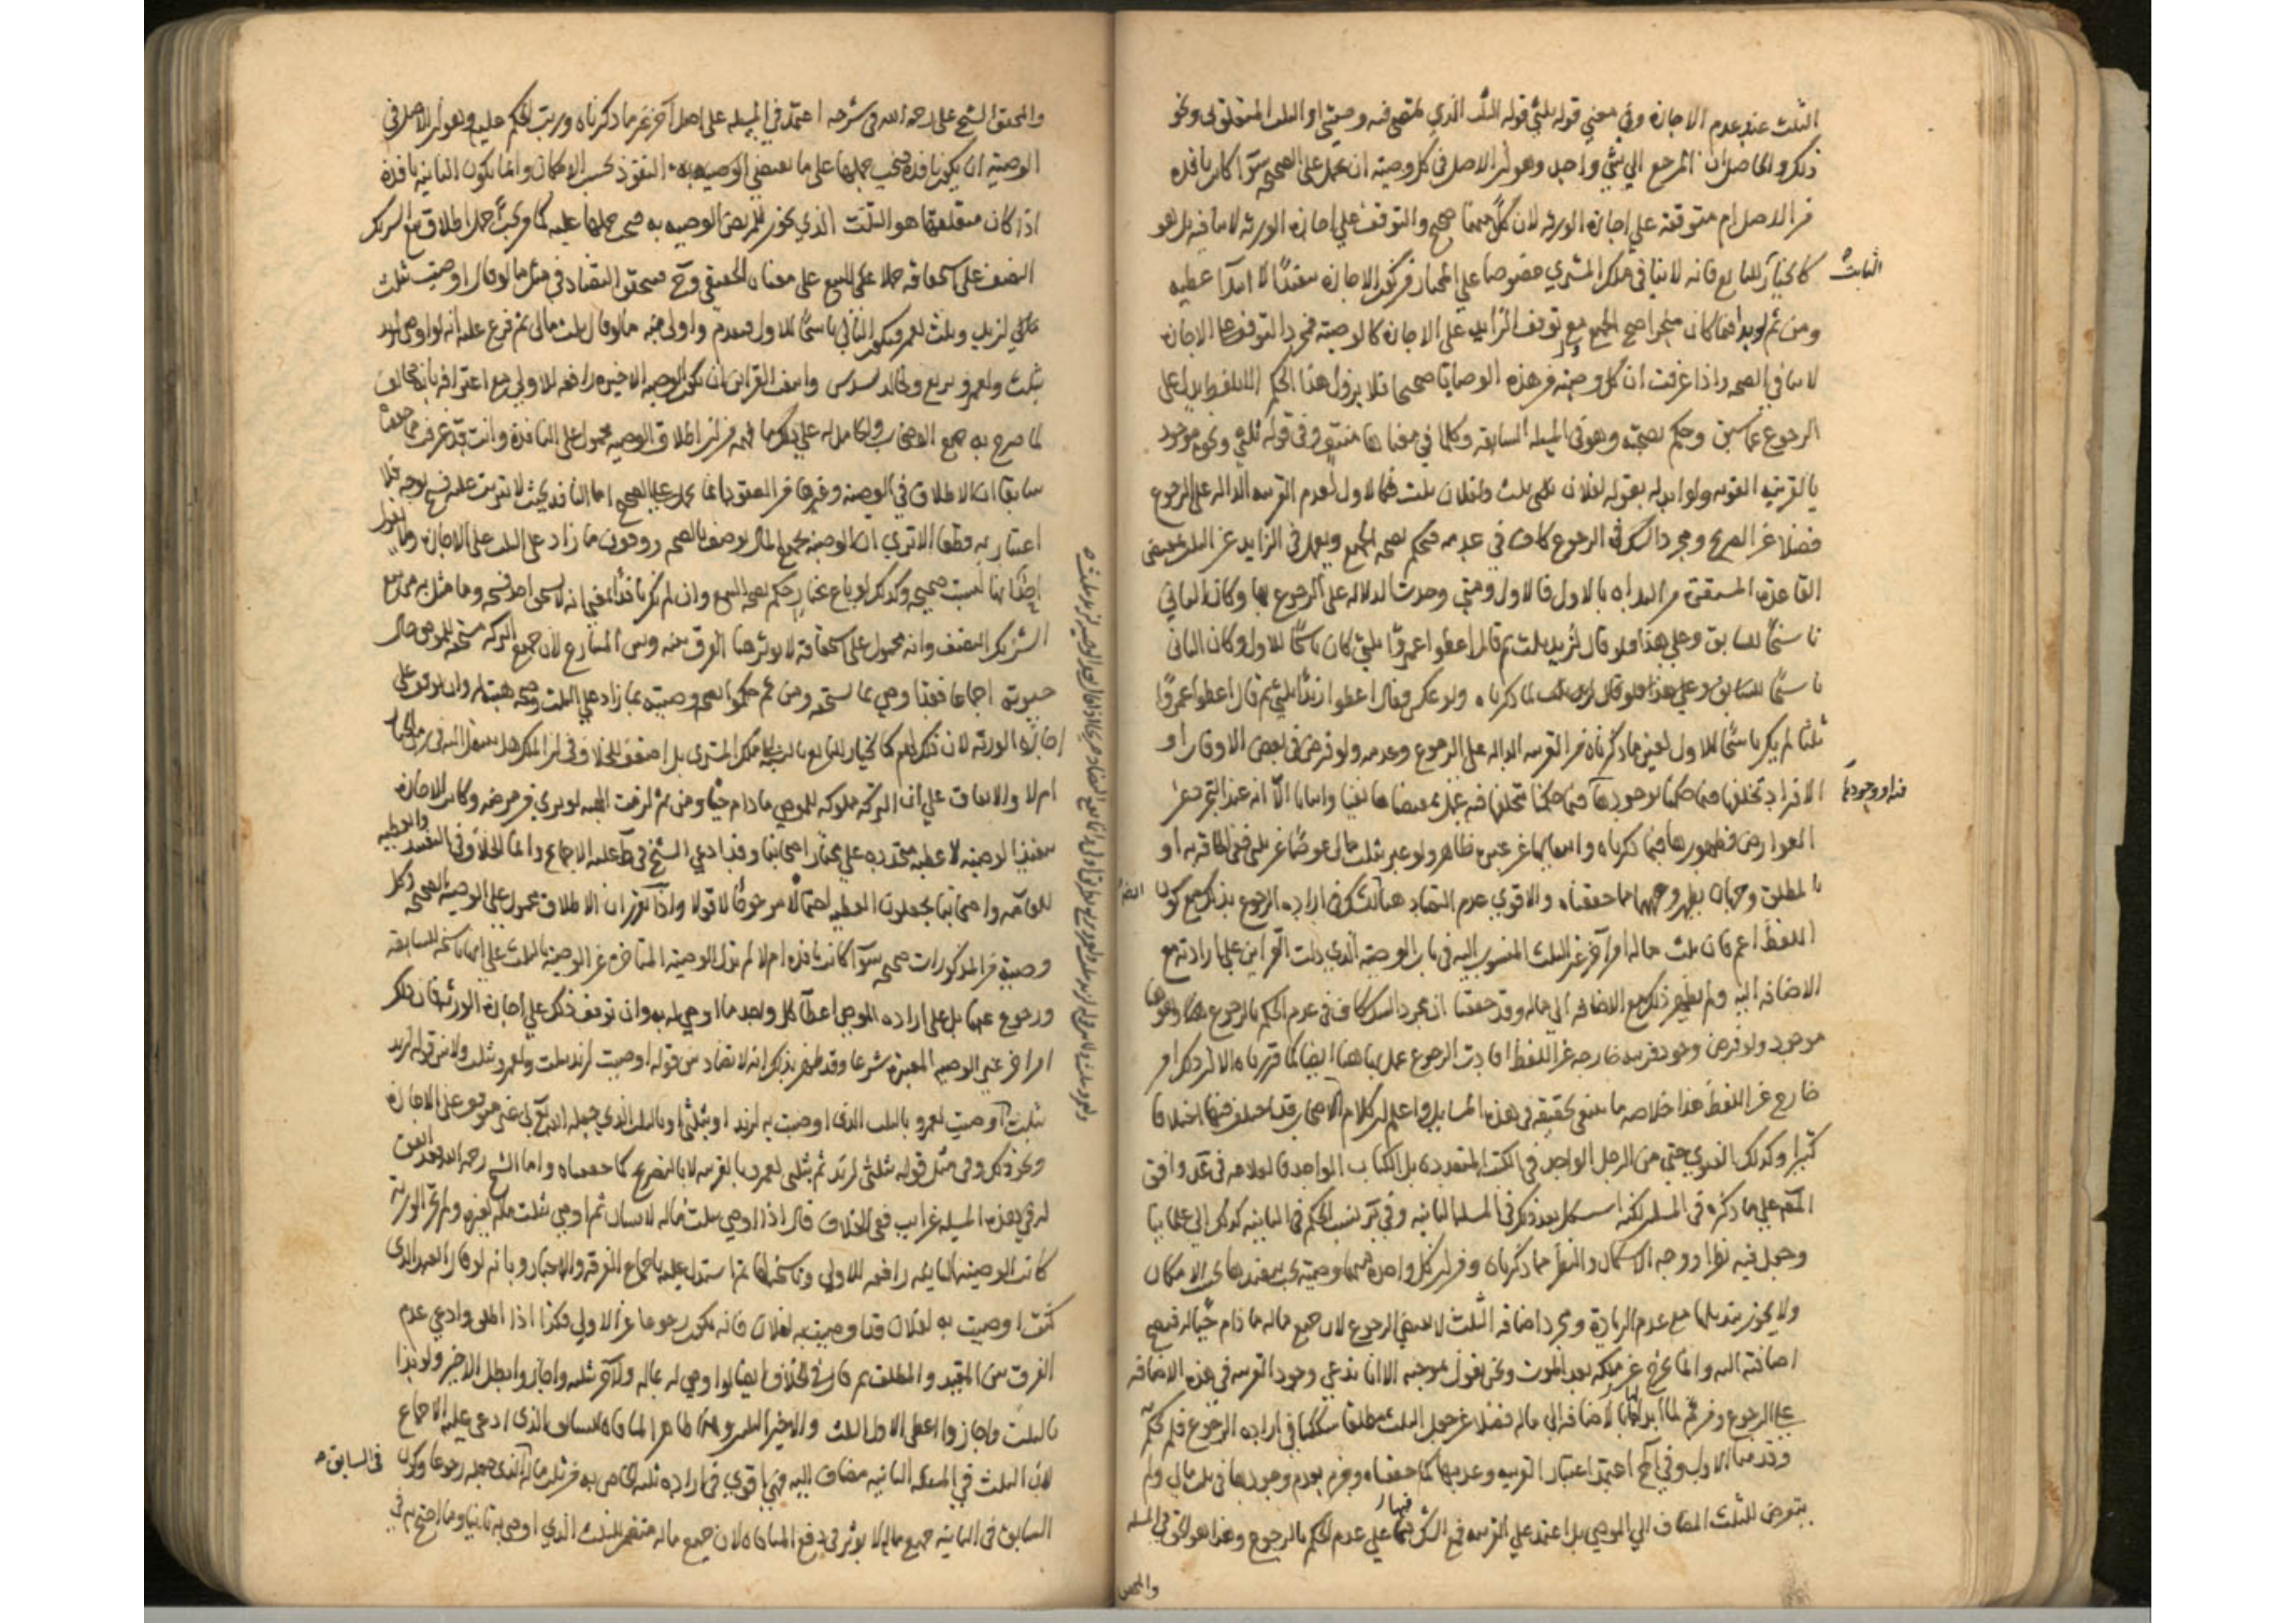 الثلث عند عدم الاجازة وفي معنى قوله بثلثي قوله الثلث الذي تمضى فيه وصيتي او الثلث المتعلق بي ونحو
ذلك والحاصل ان المرجع الى شيء واحد وهو ان الاصل في كل وصية ان تحمل على الصحة سوآ كانت نافذة
من الاصل ام متوقفة على اجازة الورثة لان كلا منهما صحيح والتوقف على اجازة الورثة لا ينافيه بل هو
كالخيار للبايع فانه لا ينافي ملك المشتري خصوصا على المختار من كون الاجازة تنفيذا لا ابتدآ عطية
الثابت
ومن ثم لو بدا فيما كان منجزا صح الجميع مع توقف الزايد على الاجازة كالوصية فمجرد التوقف على الاجازة
لا ينافي الصحة واذا عرفت ان كل وصية من هذه الوصايا صحيحة فلا يزول هذا الحكم الا بلفظ يدل على
الرجوع عما سبق وحكم بصحته وهو في المسئلة السابقة وكلما في معناها منتف وفي قوله ثلثي ونحوه موجود
بالقرينة القوية ولو ابدله بقوله لفلان ثلثي بثلث ولفلان بثلث فكالاول لعدم القرينة الدالة على الرجوع
فضلا عن الصريح ومجرد الشك في الرجوع كاف في عدمه فيحكم بصحة الجميع ويعمل في الزايد عن الثلث بمقتضى
القاعدة المستقرة من البداءة بالاول فالاول ومتى وجدت الدلالة على الرجوع بها وكان الثاني
ناسخا للسابق وعلى هذا فلو قال لزيد ثلث ثم قال اعطوا عمروا ثلثي كان ناسخا للاول وكان الثاني
ناسخا للسابق وعلى هذا فلو قال لزيد ثلث لما ذكرناه ولو عكس فقال اعطوا زيدا ثلثي ثم قال اعطوا عمروا
ثلثا لم يكن ناسخا للاول لعين ما ذكرناه من القرينة الدالة على الرجوع وعدمه ولو فرض في بعض الاوقات او
الافراد تخلفها فيما حكمنا بوجودها فيما حكمنا تخلفها فيه عمل بمقتضاها نفيا واثباتا الا انه عند التجرد عن
فيه او وجودها
العوارض فظهورها فيما ذكرناه وانتفاؤها عن غيره ظاهر ولو عبر بثلث مالي عوضا عن ثلثي ففي الحاقه به او
بالمطلق وجهان يظهر وجههما مما حققناه والاقوى عدم التضاد هنا للشك في ارادة الرجوع بذلك مع كون
اللفظ اعم فان ثلث ماله امر آخر غير الثلث المنسوب اليه في باب الوصية الذي دلت القراين على ارادته مع
الاضافة اليه ولم يظهر ذلك مع الاضافة الى ماله وقد حققنا ان مجرد الشك كاف في عدم الحكم بالرجوع
موجود ولو فرض وجود قرينة خارجة عن اللفظ افادت الرجوع عمل بها هنا ايضا كما قررناه الا ان ذلك امر
خارج عن اللفظ هذا خلاصة ما ينبغي تحقيقه في هذه المسايل واعلم ان كلام الاصحاب قد اختلف فيها اختلافا
كثيرا وكذلك الفتوى حتى من الرجل الواحد في الكتب المتعددة بل الكتاب الواحد فالعلامة في عد وافق
المص على ما ذكره في المسئلة لكنه استشكل بعد ذكر في المسئلة الثانية وفي ير نسب الحكم في الثانية كذلك الى علمائنا
وجعل فيه نظرا ووجه الاشكال والنظر مما ذكرناه ومن ان كل واحدة منهما وصية يجب تنفيذها بحسب الامكان
ولا يجوز تبديلها مع عدم الزيادة ومجرد اضافة الثلث لا يقتضي الرجوع لان جميع ماله ما دام حيا له فيصح
اضافته اليه وانما يخرج عن ملكه بعد الموت ونحن نقول بموجبه الا انا ندعي وجود القرينة في هذه الاضافة
على الرجوع ومن ثم لما ابدلنا الاضافة الى ماله فضلا عن جعل الثلث مطلقا شككنا في ارادة الرجوع فلم نحكم به
وقدمنا الاول وفي آخر اعتمد اعتبار القرينة وعدمها كما حققناه وجزم بعدم وجودها في ثلث مالي ولم
يتعرض للثلث المضاف الى الموصي بل اعتمد على القرينة فمع الشك فيها على عدم الحكم بالرجوع وهذا هو الحق في المسئلة
والمحقق
والمحقق الشيخ علي رحمه الله في شرحه اعتمد في المسئلة على اصل آخر غير ما ذكرناه ورتب الحكم عليه وهو ان الاصل في
الوصية ان تكون نافذة فيجب حملها على ما يقتضي النفوذ بحسب الامكان وانما تكون الثانية نافذة
اذا كان متعلقها هو الثلث الذي يجوز للمريض الوصية به فيجب حملها عليه كما يجب حمل اطلاق بيع الشريك
النصف على استحقاقه حملا على البيع على معناه الحقيقي وح فيتحقق التضاد في مثل ما لو قال اوصيت بثلث
مالي لزيد وبثلث لعمرو فيكون الثاني ناسخا للاول فيقدم واولى منه ما لو قال بثلث مالي ثم فرع عليه انه لو اوصى لزيد
بثلث ولعمرو بربع ولخالد بسدس وانتفت القراين ان تكون الوصية الاخيرة رافعة للاولى مع اعترافه بانه مخالف
لما صرح به جميع الاصحاب والحامل له على ذلك ما فهمه من ان اطلاق الوصية محمول على النافذة وانت قد عرفت مما حققناه
سابقا ان الاطلاق في الوصية وغيرها من العقود انما يحمل على الصحيح اما النافذ بحيث لا يترتب عليه فسخ بوجه فلا
اعتبار به قطعا الا ترى ان الوصية بجميع المال توصف بالصحة ووقوف ما زاد على الثلث على الاجازة وما نقول
ايضا انها ليست صحيحة وكذلك لو باع بخيار حكم بصحة البيع وان لم يكن نافذا بمعنى انه لا يستحق احد فسخه وما مثل به من بيع
الشريك النصف وانه محمول على استحقاقه لا يوثر هنا الفرق بينه وبين المتنازع لان جميع التركة مستحقة للموصي حال
حيوته اجماعا فهنا وصى بما يستحقه ومن ثم حكموا بصحة وصيته بما زاد على الثلث وصحة هبته له وان توقف على
اجازة الورثة لان ذلك لهم كالخيار للبايع بالنسبة الى ملك المشتري بل اضعف للخلاف في ان الملك هل ينتقل اليه في زمن الخيار
ام لا والاتفاق على ان التركة مملوكة للموصي ما دام حيا ومن ثم لزمت الهبة لو بري من مرضه وكانت الاجازة
تنفيذا لوصيته لا عطية مجددة على مختار اصحابنا وقد ادعى الشيخ في ط عليه الاجماع وانما الخلاف في التنفيذ والعطية
للعامة واصحابنا يجعلون العطية احتمالا مرجوحا لا قولا واذا تقرر ان الاطلاق محمول على الوصية الصحيحة وكل
وصية من المذكورات صحيحة سوآ كانت نافذة ام لا لم تدل الوصية المتاخرة عن الوصية بالثلث على انها ناسخة للسابقة
ورجوع عنها بل على ارادة الموصي اعطآ كل واحد ما اوصى له به وان توقف ذلك على اجازة الورثة فان ذلك
امر آخر غير الوصية المعتبرة شرعا وقد ظهر بذلك انه لا تضاد بين قوله اوصيت لزيد بثلث ولعمرو بثلث ولا بين قوله لزيد
بثلث اوصيت لعمرو بالثلث الذي اوصيت به لزيد او بثلثي او بالثلث الذي جعله الله تع لي غير متوقف على الاجازة
ونحو ذلك وفي مثل قوله بثلثي لزيد ثم بثلثي لعمرو بالقرينة لا بالتصريح كما حققناه واما الشيخ رحمه الله فقد اتفق
له في هذه المسئلة غرايب ففي الخلاف قال اذا اوصى بثلث ماله لانسان ثم اوصى بثلث ماله لغيره ولم تجز الورثة
كانت الوصية الثانية رافعة للاولى وناسخة لها ثم استدل عليه باجماع الفرقة والاخبار وبانه لو قال العبد الذي
كنت اوصيت به لفلان قد اوصيت به لفلان فانه يكون رجوعا عن الاولى فكذا اذا اطلق وادعى عدم
الفرق بين المقيد والمطلق ثم قال في الخلاف ايضا لو اوصى له بماله ولآخر بثلثه واجازوا بطل الاخير ولو بدا
بالثلث واجازوا اعطي الاول الثلث والاخير الثلثين وهذا ظاهر المنافاة للسابق الذي ادعى عليه الاجماع
لان الثلث في المسئلة الثانية مضاف اليه فهي اقوى في ارادة ثلثه الخاص به من ثلث ماله الذي جعله رجوعا وكون
في السابق
السابق في الثانية جميع ماله لا يوثر في دفع المنافاة لان جميع ماله متضمن للثلث الذي اوصى به ثانيا وما احتج به في